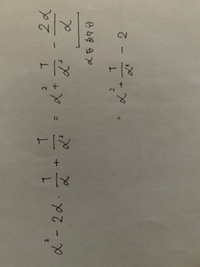 α² - 2α · 1/α + 1/α² = α² + 1/α² - 2α/α
αを約分
= α² + 1/α² - 2